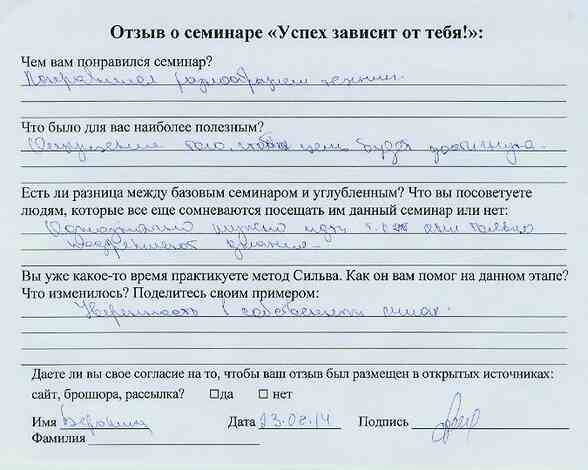 Отзыв о семинаре «Успех зависит от тебя!»:
Чем вам понравился семинар?
Понравился разнообразием техник.
Что было для вас наиболее полезным?
Ощущение того, что цель будет достигнута.
Есть ли разница между базовым семинаром и углубленным? Что вы посоветуете
людям, которые все еще сомневаются посещать им данный семинар или нет:
Однозначно нужно идти т.к.
знания
Вы уже какое-то время практикуете метод Сильва. Как он вам помог на данном этапе?
Что изменилось? Поделитесь своим примером:
Уверенность в собственных силах.
Даете ли вы свое согласие на то, чтобы ваш отзыв был размещен в открытых источниках:
сайт, брошюра, рассылка? □да □ нет
Имя Дата 23.02.14 Подпись
Фамилия